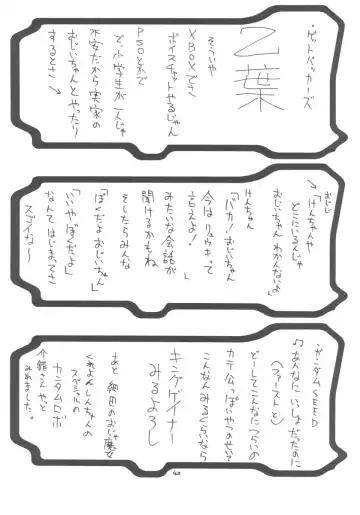 ・ゲットバッカーズ
乙葉
そういや
XBOXでさ
ボイスチャットやるじゃん
PSOとかで
で、小学生が一人じゃ
不安だから実家の
おじいちゃんとやったり
するとさ
おじじ
「けんちゃんや
どこにいるじゃ
おじいちゃんわかんないよ」
けんちゃん
「バカ!おじいちゃん
今はリュウキって
言えよ!」
みたいな会話が
聞けるかもね
そしたらみんな
「ぼくだよおじいちゃん」
「いいやぼくだよ」
なんてはじまってさ
スゴイな〜
・ガンダムSEED
「♪あんなにいっしょだったのに
(ファーストと)
どーしてこんなにつらいの
カテ公っぽいやつのせい?
こんなんみるくらいなら
キングゲイナー
みるよろし
あと 細田のおじゃ魔女
くれよんしんちゃんの
スペシャルの
カンタムロボ
介錯さんやっと
みれました。